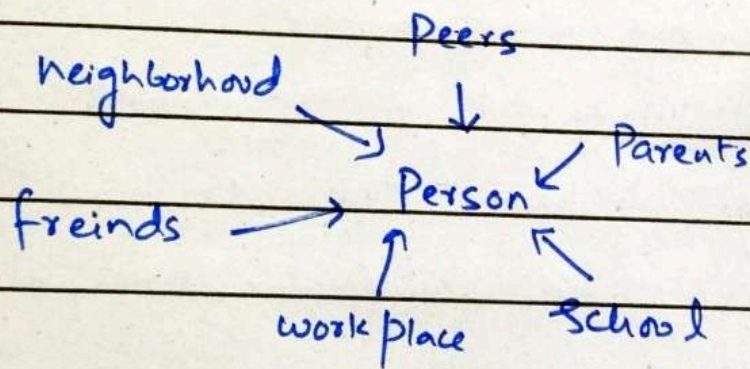 Peers
neighborhood
Parents
Person
freinds
work place
School